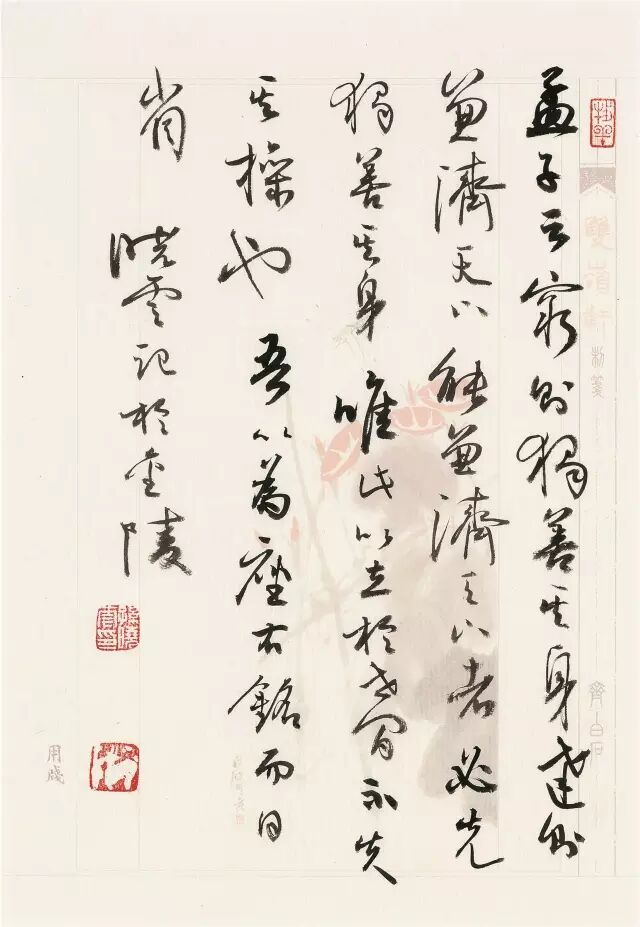 孟子云窮則獨善其身達則
兼濟天下能兼濟天下者必先
獨善其身唯此以立於世間不失
其操也吾以為座右銘而日
省
曉雲記於金陵
齊白石
用牋